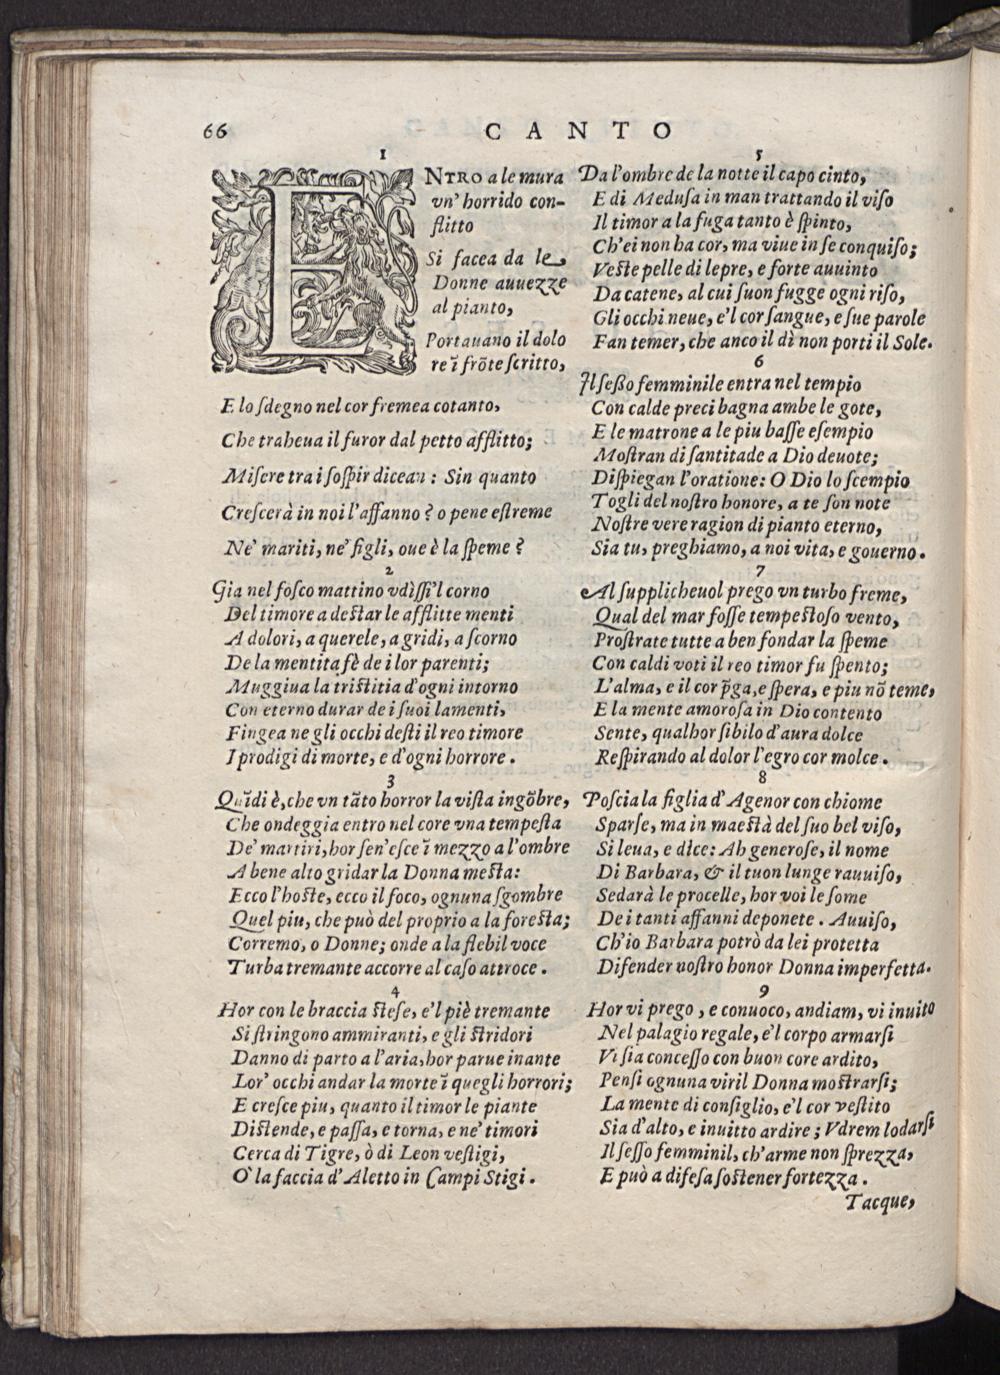 66
CANTO
1
ENTRO a le mura
vn' horrido con-
flitto
Si facea da le
Donne auuezze
al pianto,
Portauano il dolo
re ĩ frõte ſcritto,
E lo ſdegno nel cor fremea cotanto,
Che traheua il furor dal petto afflitto;
Miſere tra i ſoſpir dicean: Sin quanto
Creſcerà in noi l'affanno? o pene eſtreme
Ne' mariti, ne' figli, oue è la ſpeme?
2
Gia nel foſco mattino vdìſſi'l corno
Del timore a deſtar le afflitte menti
A dolori, a querele, a gridi, a ſcorno
De la mentita fè de i lor parenti;
Muggiua la triſtitia d'ogni intorno
Con eterno durar de i ſuoi lamenti,
Fingea ne gli occhi deſti il reo timore
I prodigi di morte, e d'ogni horrore.
3
Quĩdi è, che vn tãto horror la viſta ingõbre,
Che ondeggia entro nel core vna tempeſta
De' martiri, hor ſen'eſce ĩ mezzo a l'ombre
A bene alto gridar la Donna meſta:
Ecco l'hoſte, ecco il foco, ognuna ſgombre
Quel piu, che può del proprio a la foreſta;
Corremo, o Donne; onde a la flebil voce
Turba tremante accorre al caſo attroce.
4
Hor con le braccia ſteſe, e'l piè tremante
Si ſtringono ammiranti, e gli ſtridori
Danno di parto a l'aria, hor parue inante
Lor' occhi andar la morte ĩ quegli horrori;
E creſce piu, quanto il timor le piante
Diſtende, e paſſa, e torna, e ne' timori
Cerca di Tigre, ò di Leon veſtigi,
O' la faccia d'Aletto in Campi Stigi.
5
Da l'ombre de la notte il capo cinto,
E di Meduſa in man trattando il viſo
Il timor a la fuga tanto è ſpinto,
Ch'ei non ha cor, ma viue in ſe conquiſo;
Veſte pelle di lepre, e forte auuinto
Da catene, al cui ſuon fugge ogni riſo,
Gli occhi neue, e'l cor ſangue, e ſue parole
Fan temer, che anco il dì non porti il Sole.
6
Il ſeßo femminile entra nel tempio
Con calde preci bagna ambe le gote,
E le matrone a le piu baſſe eſempio
Moſtran di ſantitade a Dio deuote;
Diſpiegan l'oratione: O Dio lo ſcempio
Togli del noſtro honore, a te ſon note
Noſtre vere ragion di pianto eterno,
Sia tu, preghiamo, a noi vita, e gouerno.
7
Al ſupplicheuol prego vn turbo freme,
Qual del mar foſſe tempeſtoſo vento,
Proſtrate tutte a ben fondar la ſpeme
Con caldi voti il reo timor fu ſpento;
L'alma, e il cor p̃ga, e ſpera, e piu nõ teme,
E la mente amoroſa in Dio contento
Sente, qualhor ſibilo d'aura dolce
Reſpirando al dolor l'egro cor molce.
8
Poſcia la figlia d'Agenor con chiome
Sparſe, ma in maeſtà del ſuo bel viſo,
Si leua, e dice: Ah generoſe, il nome
Di Barbara, & il tuon lunge rauuiſo,
Sedarà le procelle, hor voi le ſome
De i tanti affanni deponete. Auuiſo,
Ch'io Barbara potrò da lei protetta
Difender uoſtro honor Donna imperfetta.
9
Hor vi prego, e conuoco, andiam, vi inuito
Nel palagio regale, e'l corpo armarſi
Vi ſia conceſſo con buon core ardito,
Penſi ognuna viril Donna moſtrarſi;
La mente di conſiglio, e'l cor veſtito
Sia d'alto, e inuitto ardire; Vdrem lodarſi
Il ſeſſo femminil, ch'arme non ſprezza,
E può a difeſa ſoſtener fortezza.
Tacque,